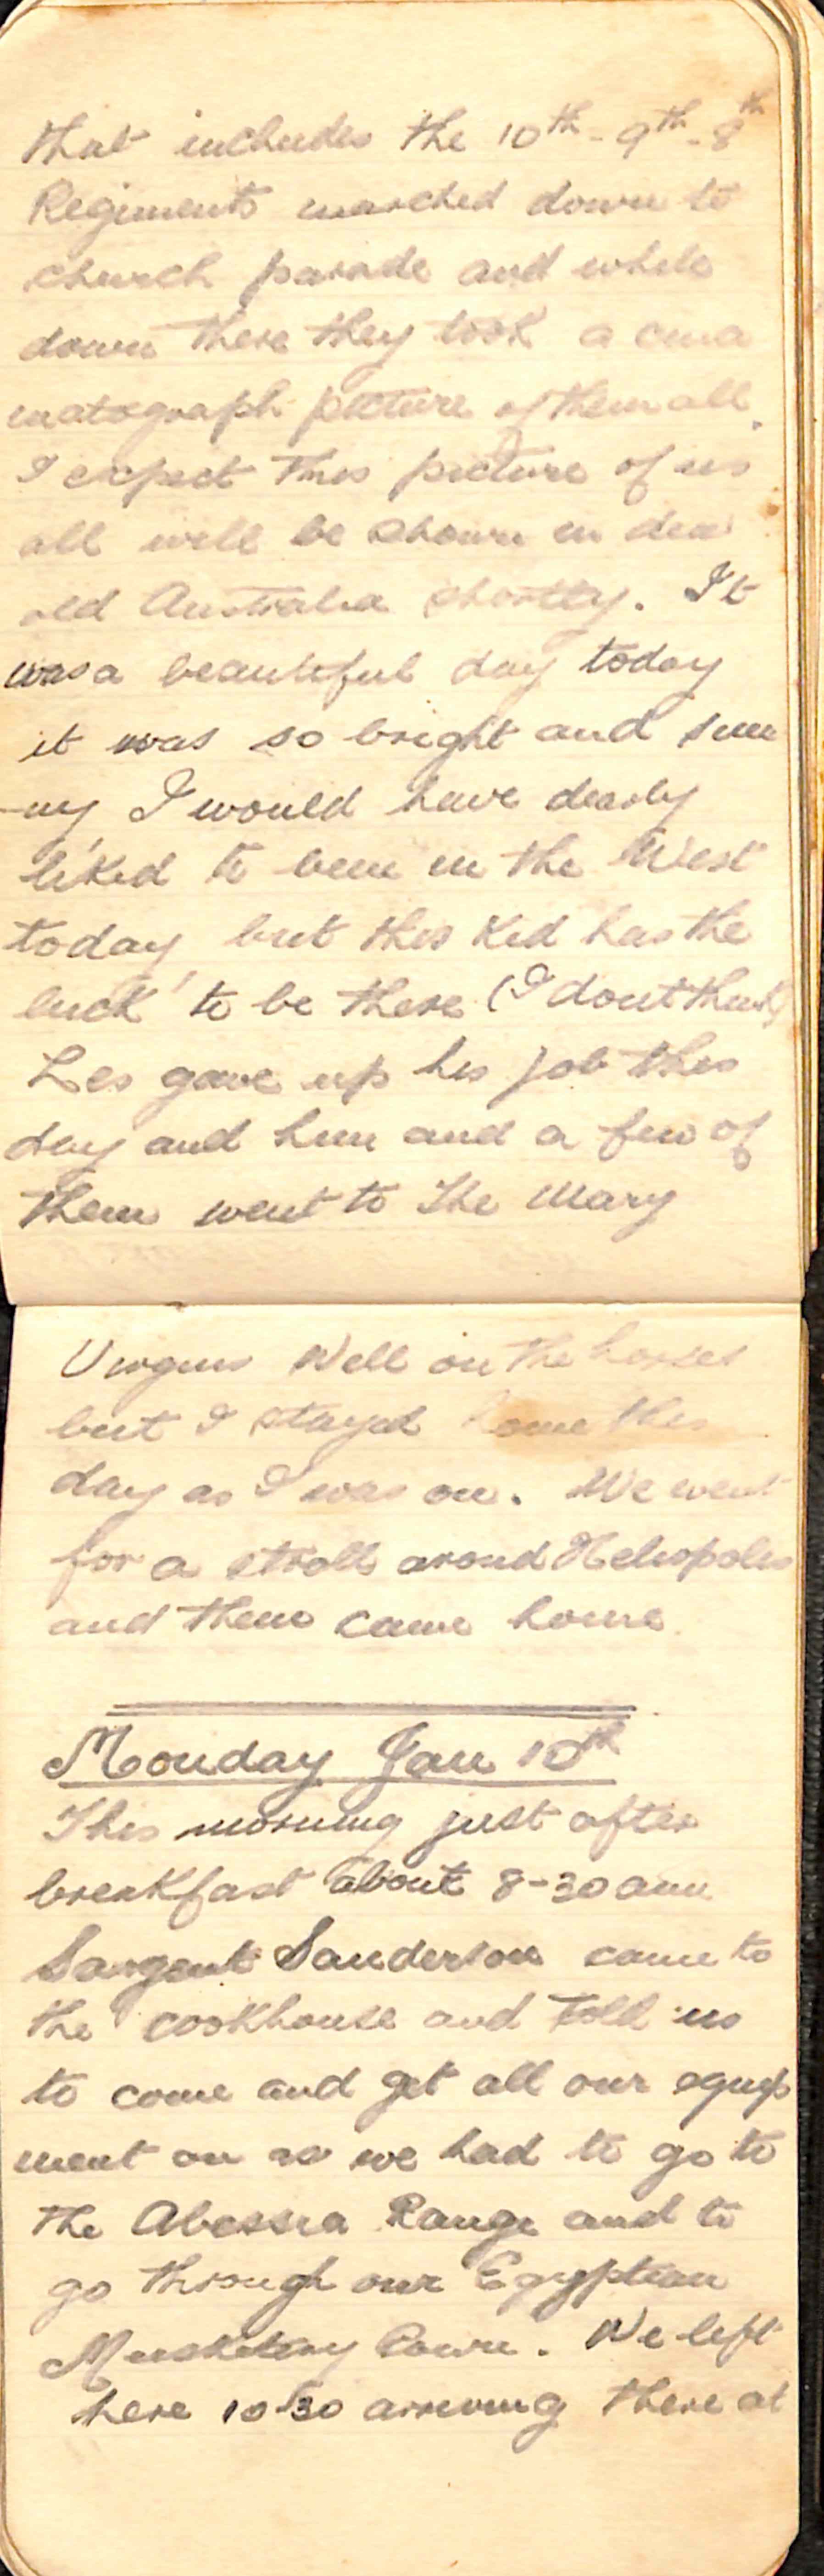 that includes the 10th - 9th - 8th
Regiments marched down to
church parade and while
down there they took a cina
matograph picture of them all.
I expect this picture of us
all will be shown in dea
old Australia shortly. It
was a beautiful day today
it was so bright and sun
-ny I would have dearly
liked to been in the West
today, but this Kid has the
luck to be there (I dont think)
Les gave up his job this
day and him and a few of
them went to The Mary
Virgins Well on the horses
but I stayed home this
day as I was on. We went
for a stroll around Heliopolis
and then came home
Monday Jan 10th
This morning just after
breakfast about 8-30 am
Sargent Sanderson came to
the cookhouse and told us
to come and get all our equip
ment on as we had to go to
the Abessia Range and to
go through our Egyptian
Musketry Course. We left
here 10-30 arriving there at